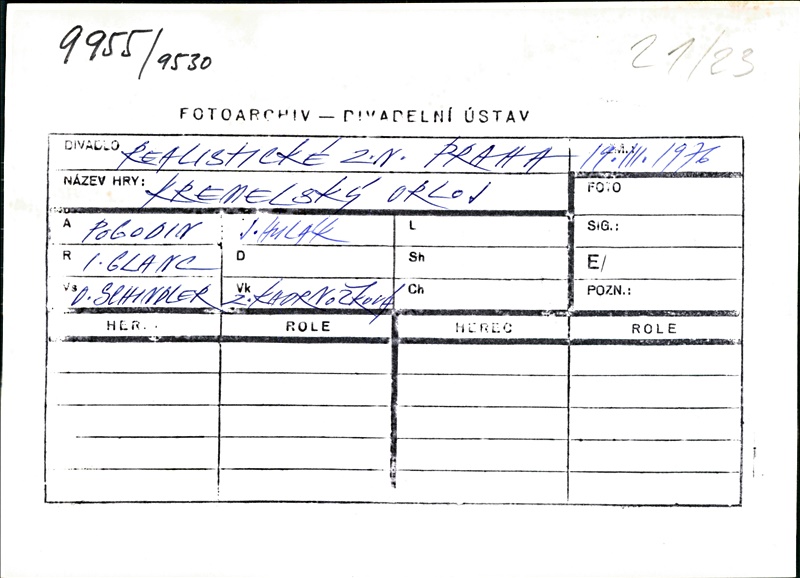 9955/9530
21/23
FOTOARCHIV — DIVADELNÍ ÚSTAV
DIVADLO REALISTICKÉ Z.N. PRAHA 19.III.1976
NÁZEV HRY: KREMELSKÝ ORLOJ FOTO
A POGODIN J. HULÁK L SIG.:
R I. GLANC D Sh E/
Vs O. SCHINDLER Vk Z. KADRNOŽKOVÁ Ch POZN.:
HER. ROLE HEREC ROLE